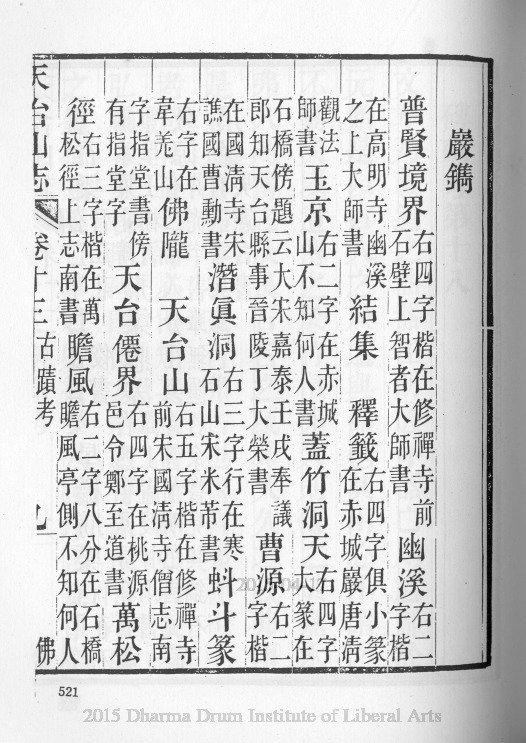 巖鐫
普賢境界右四字楷在修禪寺前石壁上智者大師書幽溪右二字楷
在高明寺幽溪之上大師書結集 釋籤右四字俱小篆在赤城巖唐清
觀法師書玉京右二字在赤城山不知何人書蓋竹洞天右四字大篆在
石橋傍題云大宋嘉泰壬戌奉議郎知天台縣事晉陵丁大榮書曹源右二字楷
在國清寺宋譙國曹勳書潛眞洞右三字行在寒石山宋米芾書蚪斗篆
右字在韋羌山佛隴 天台山右五字楷在修禪寺前宋國清寺僧志南
字指堂書傍有指堂字天台僊界右四字在桃源邑令鄭至道書萬松
徑右三字楷在萬松徑上志南書瞻風右二字八分在石橋瞻風亭側不知何人
天台山志 卷十三 古蹟考 九 佛
521
2015 Dharma Drum Institute of Liberal Arts